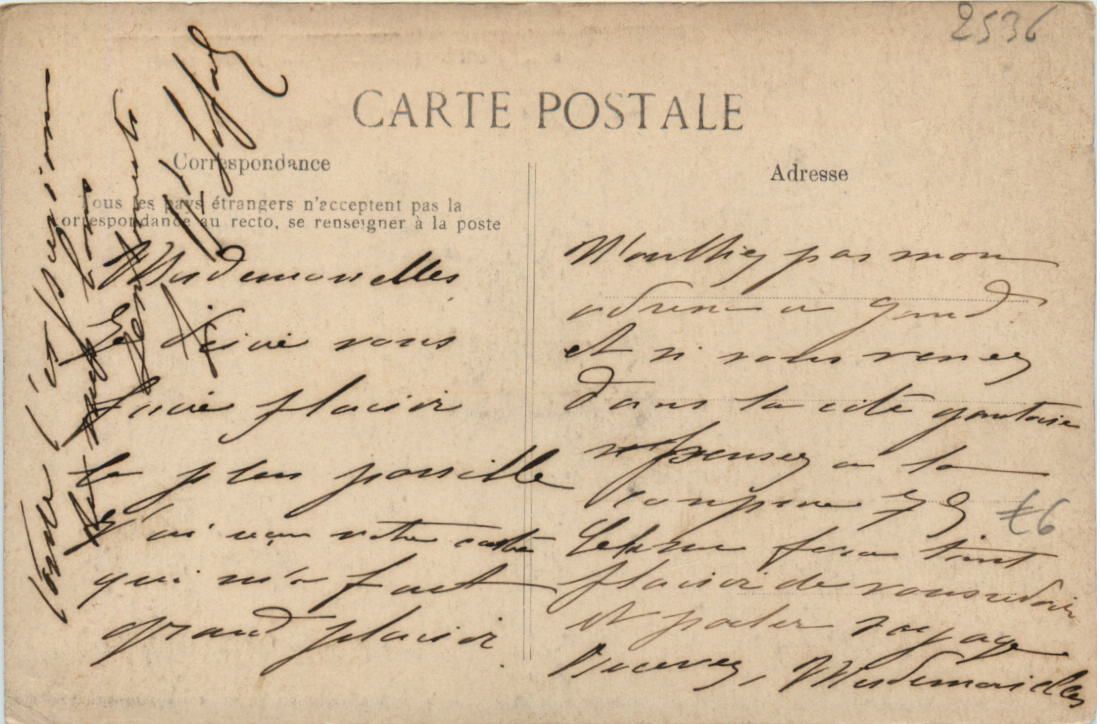 2536
CARTE POSTALE
Correspondance
Tous les pays étrangers n'acceptent pas la
correspondance au recto, se renseigner à la poste
Mademoiselles
Je désire vous
faire plaisir
le plus possible
J'ai reçu votre carte
qui m'a fait
grand plaisir
Adresse
N'oubliez pas mon
adresse a Gand
et si vous venez
dans la cité gantoise
pensez a la
79
Cela me fera tant
plaisir de vous voir
et parler voyage
Recevez, Mademoiselles
toute l'expression
de mes bons
sentiments
£6